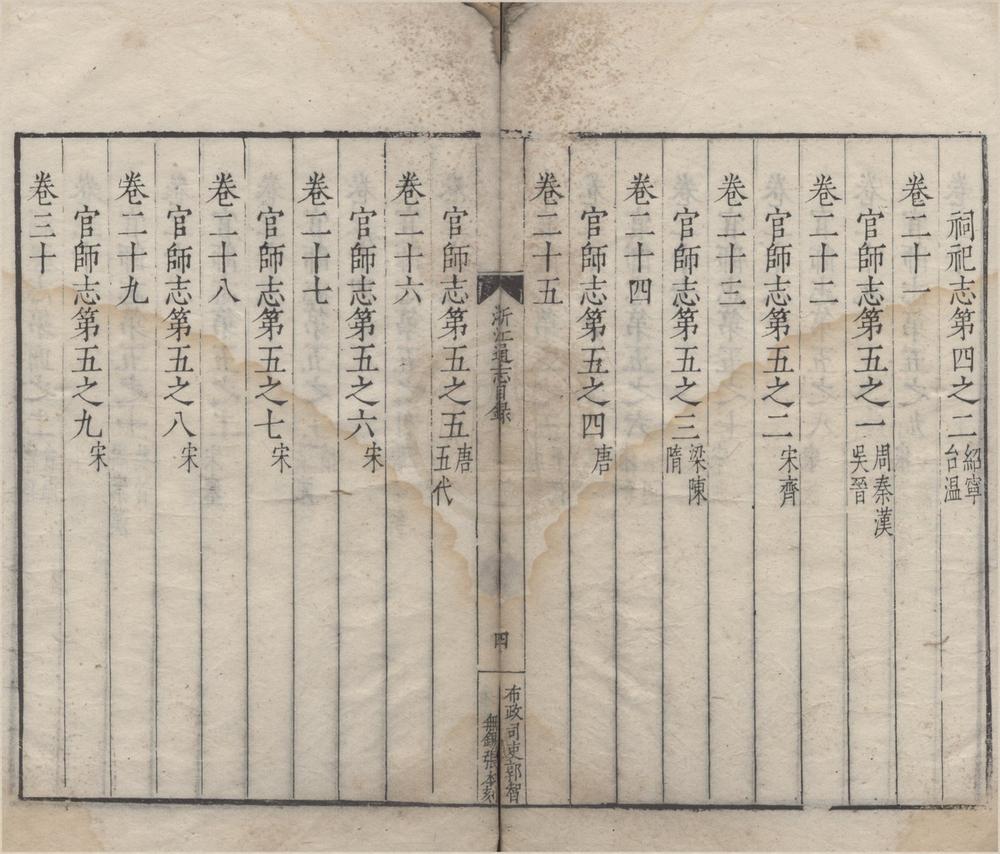 祠祀志第四之二 紹寧台温
卷二十一
官師志第五之一 周秦漢吳晉
卷二十二
官師志第五之二 宋齊
卷二十三
官師志第五之三 梁陳隋
卷二十四
官師志第五之四 唐
卷二十五
浙江通志目録
四
布政司吏郭智
無錫張本刻
官師志第五之五 唐五代
卷二十六
官師志第五之六 宋
卷二十七
官師志第五之七 宋
卷二十八
官師志第五之八 宋
卷二十九
官師志第五之九 宋
卷三十